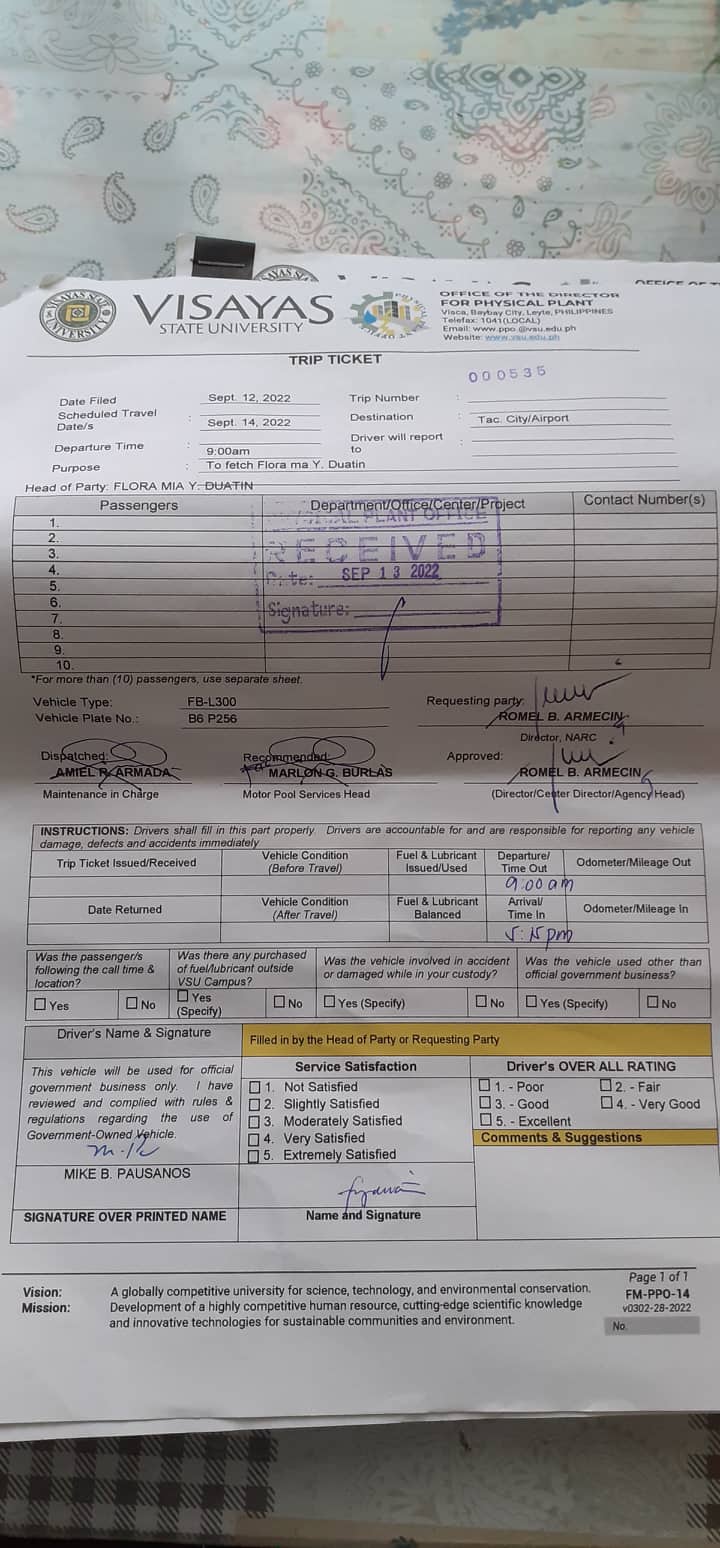 VISAYAS
STATE UNIVERSITY
OFFICE OF THE DIRECTOR
FOR PHYSICAL PLANT
Visca, Baybay City, Leyte, PHILIPPINES
Telefax: 1041(LOCAL)
Email: www.ppo.@vsu.edu.ph
Website: www.vsu.edu.ph
TRIP TICKET
000535
Date Filed Sept. 12, 2022 Trip Number :
Scheduled Travel Date/s : Sept. 14, 2022 Destination : Tac. City/Airport
Departure Time : 9:00am Driver will report to :
Purpose : To fetch Flora ma Y. Duatin
Head of Party: FLORA MIA Y. DUATIN
Passengers Department/Office/Center/Project Contact Number(s)
1.
2.
3.
4.
5.
6.
7.
8.
9.
10.
PHYSICAL PLANT OFFICE
RECEIVED
Date: SEP 13 2022
Signature:
*For more than (10) passengers, use separate sheet.
Vehicle Type: FB-L300 Requesting party:
Vehicle Plate No.: B6 P256 ROMEL B. ARMECIN
Director, NARC
Dispatched: Recommended: Approved:
AMIEL R. ARMADA MARLON G. BURLAS ROMEL B. ARMECIN
Maintenance in Charge Motor Pool Services Head (Director/Center Director/Agency Head)
INSTRUCTIONS: Drivers shall fill in this part properly. Drivers are accountable for and are responsible for reporting any vehicle
damage, defects and accidents immediately
Trip Ticket Issued/Received Vehicle Condition (Before Travel) Fuel & Lubricant Issued/Used Departure/ Time Out Odometer/Mileage Out
9:00 am
Date Returned Vehicle Condition (After Travel) Fuel & Lubricant Balanced Arrival/ Time In Odometer/Mileage In
pm
Was the passenger/s following the call time & location? Was there any purchased of fuel/lubricant outside VSU Campus? Was the vehicle involved in accident or damaged while in your custody? Was the vehicle used other than official government business?
Yes No Yes (Specify) No Yes (Specify) No Yes (Specify) No
Driver's Name & Signature Filled in by the Head of Party or Requesting Party
This vehicle will be used for official
government business only. I have
reviewed and complied with rules &
regulations regarding the use of
Government-Owned Vehicle.
MIKE B. PAUSANOS
SIGNATURE OVER PRINTED NAME
Service Satisfaction
1. Not Satisfied
2. Slightly Satisfied
3. Moderately Satisfied
4. Very Satisfied
5. Extremely Satisfied
Name and Signature
Driver's OVER ALL RATING
1. - Poor 2. - Fair
3. - Good 4. - Very Good
5. - Excellent
Comments & Suggestions
Vision: A globally competitive university for science, technology, and environmental conservation.
Mission: Development of a highly competitive human resource, cutting-edge scientific knowledge
and innovative technologies for sustainable communities and environment.
Page 1 of 1
FM-PPO-14
v0302-28-2022
No.